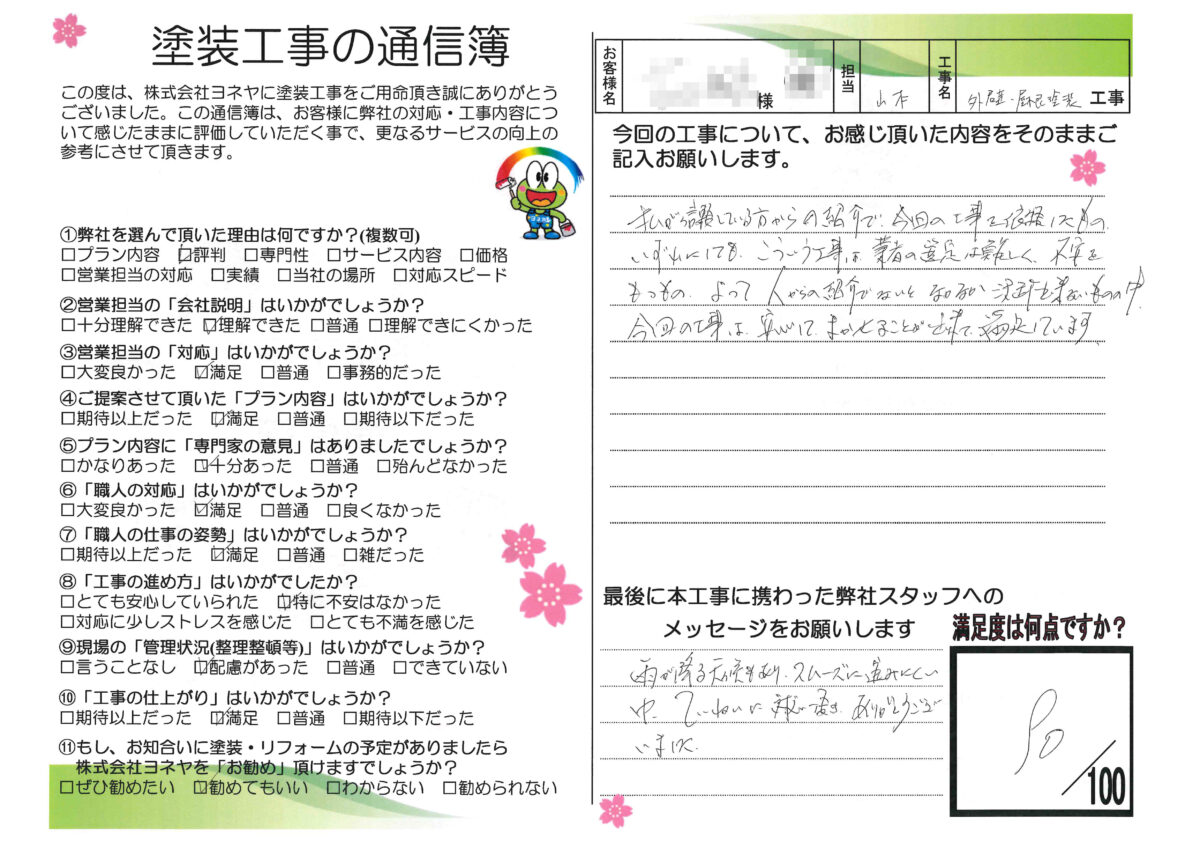 塗装工事の通信簿
この度は、株式会社ヨネヤに塗装工事をご用命頂き誠にありがとう
ございました。この通信簿は、お客様に弊社の対応・工事内容につ
いて感じたままに評価していただく事で、更なるサービスの向上の
参考にさせて頂きます。
①弊社を選んで頂いた理由は何ですか？(複数可)
□プラン内容 ☑評判 □専門性 □サービス内容 □価格
□営業担当の対応 □実績 □当社の場所 □対応スピード
②営業担当の「会社説明」はいかがでしょうか？
□十分理解できた ☑理解できた □普通 □理解できにくかった
③営業担当の「対応」はいかがでしょうか？
□大変良かった ☑満足 □普通 □事務的だった
④ご提案させて頂いた「プラン内容」はいかがでしょうか？
□期待以上だった ☑満足 □普通 □期待以下だった
⑤プラン内容に「専門家の意見」はありましたでしょうか？
□かなりあった ☑十分あった □普通 □殆んどなかった
⑥「職人の対応」はいかがでしょうか？
□大変良かった ☑満足 □普通 □良くなかった
⑦「職人の仕事の姿勢」はいかがでしょうか？
□期待以上だった ☑満足 □普通 □雑だった
⑧「工事の進め方」はいかがでしたか？
□とても安心していられた ☑特に不安はなかった
□対応に少しストレスを感じた □とても不満を感じた
⑨現場の「管理状況(整理整頓等)」はいかがでしょうか？
□言うことなし ☑配慮があった □普通 □できていない
⑩「工事の仕上がり」はいかがでしょうか？
□期待以上だった ☑満足 □普通 □期待以下だった
⑪もし、お知合いに塗装・リフォームの予定がありましたら
株式会社ヨネヤを「お勧め」頂けますでしょうか？
□ぜひ勧めたい ☑勧めてもいい □わからない □勧められない
お客様名 様 担当 山本 工事名 外壁・屋根塗装 工事
今回の工事について、お感じ頂いた内容をそのままご
記入お願いします。
私が信頼している方からの紹介で、今回の工事を依頼したもの。
いずれにしても、こういう工事は、業者の選定は難しく、不安を
もつもの。よって人からの紹介でないと なかなか決断出来ないものの中、
今回の工事は、安心して、まかせることが出来て、満足しています。
最後に本工事に携わった弊社スタッフへの
メッセージをお願いします
雨が降る天候もあり、スムーズに進みにくい
中、ていねいに対応頂き、ありがとうござ
いました。
満足度は何点ですか？
80
/100